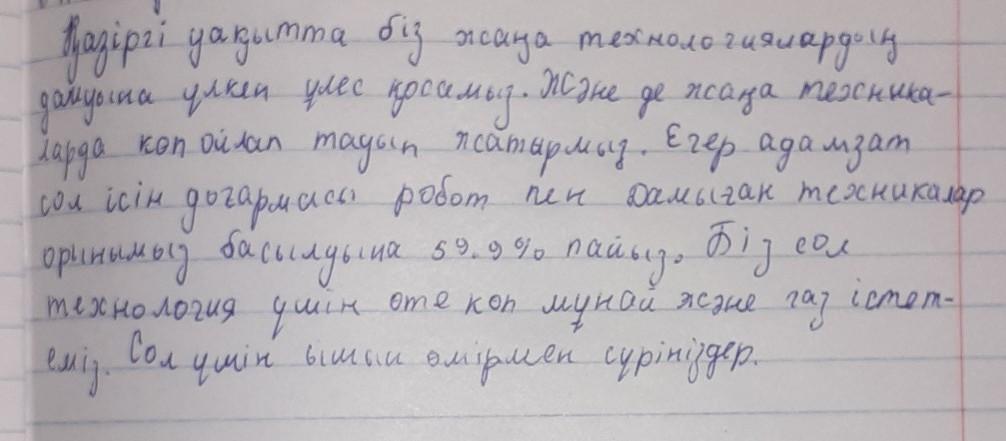 Қазіргі уақытта біз жаңа технологиялардың
дамуына үлкен үлес қосамыз. Және де жаңа техника-
ларда көп ойлап тауып жатырмыз. Егер адамзат
сол ісін доғармасы робот пен дамыған техникалар
орынымыз басылуына 59.9% пайыз. Біз сол
технология үшін өте көп мұнай және газ істет-
еміз. Сол үшін өмірмен сүріңіздер.